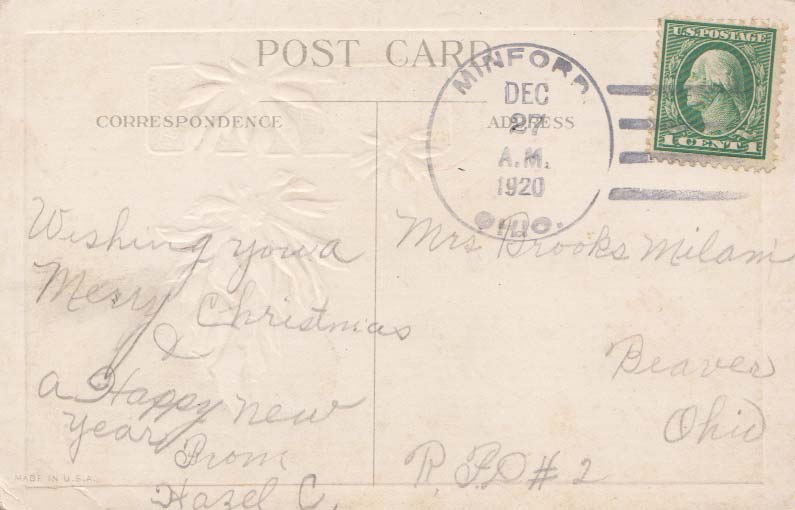 POST CARD
CORRESPONDENCE
ADDRESS
MINFORD
DEC
27
A.M.
1920
OHIO.
U.S. POSTAGE
1 CENT 1
Wishing you a
Merry Christmas
&
a Happy New
Year
From
Hazel C.
Mrs Brooks Milam
Beaver
Ohio
R. F. D # 2
MADE IN U.S.A.